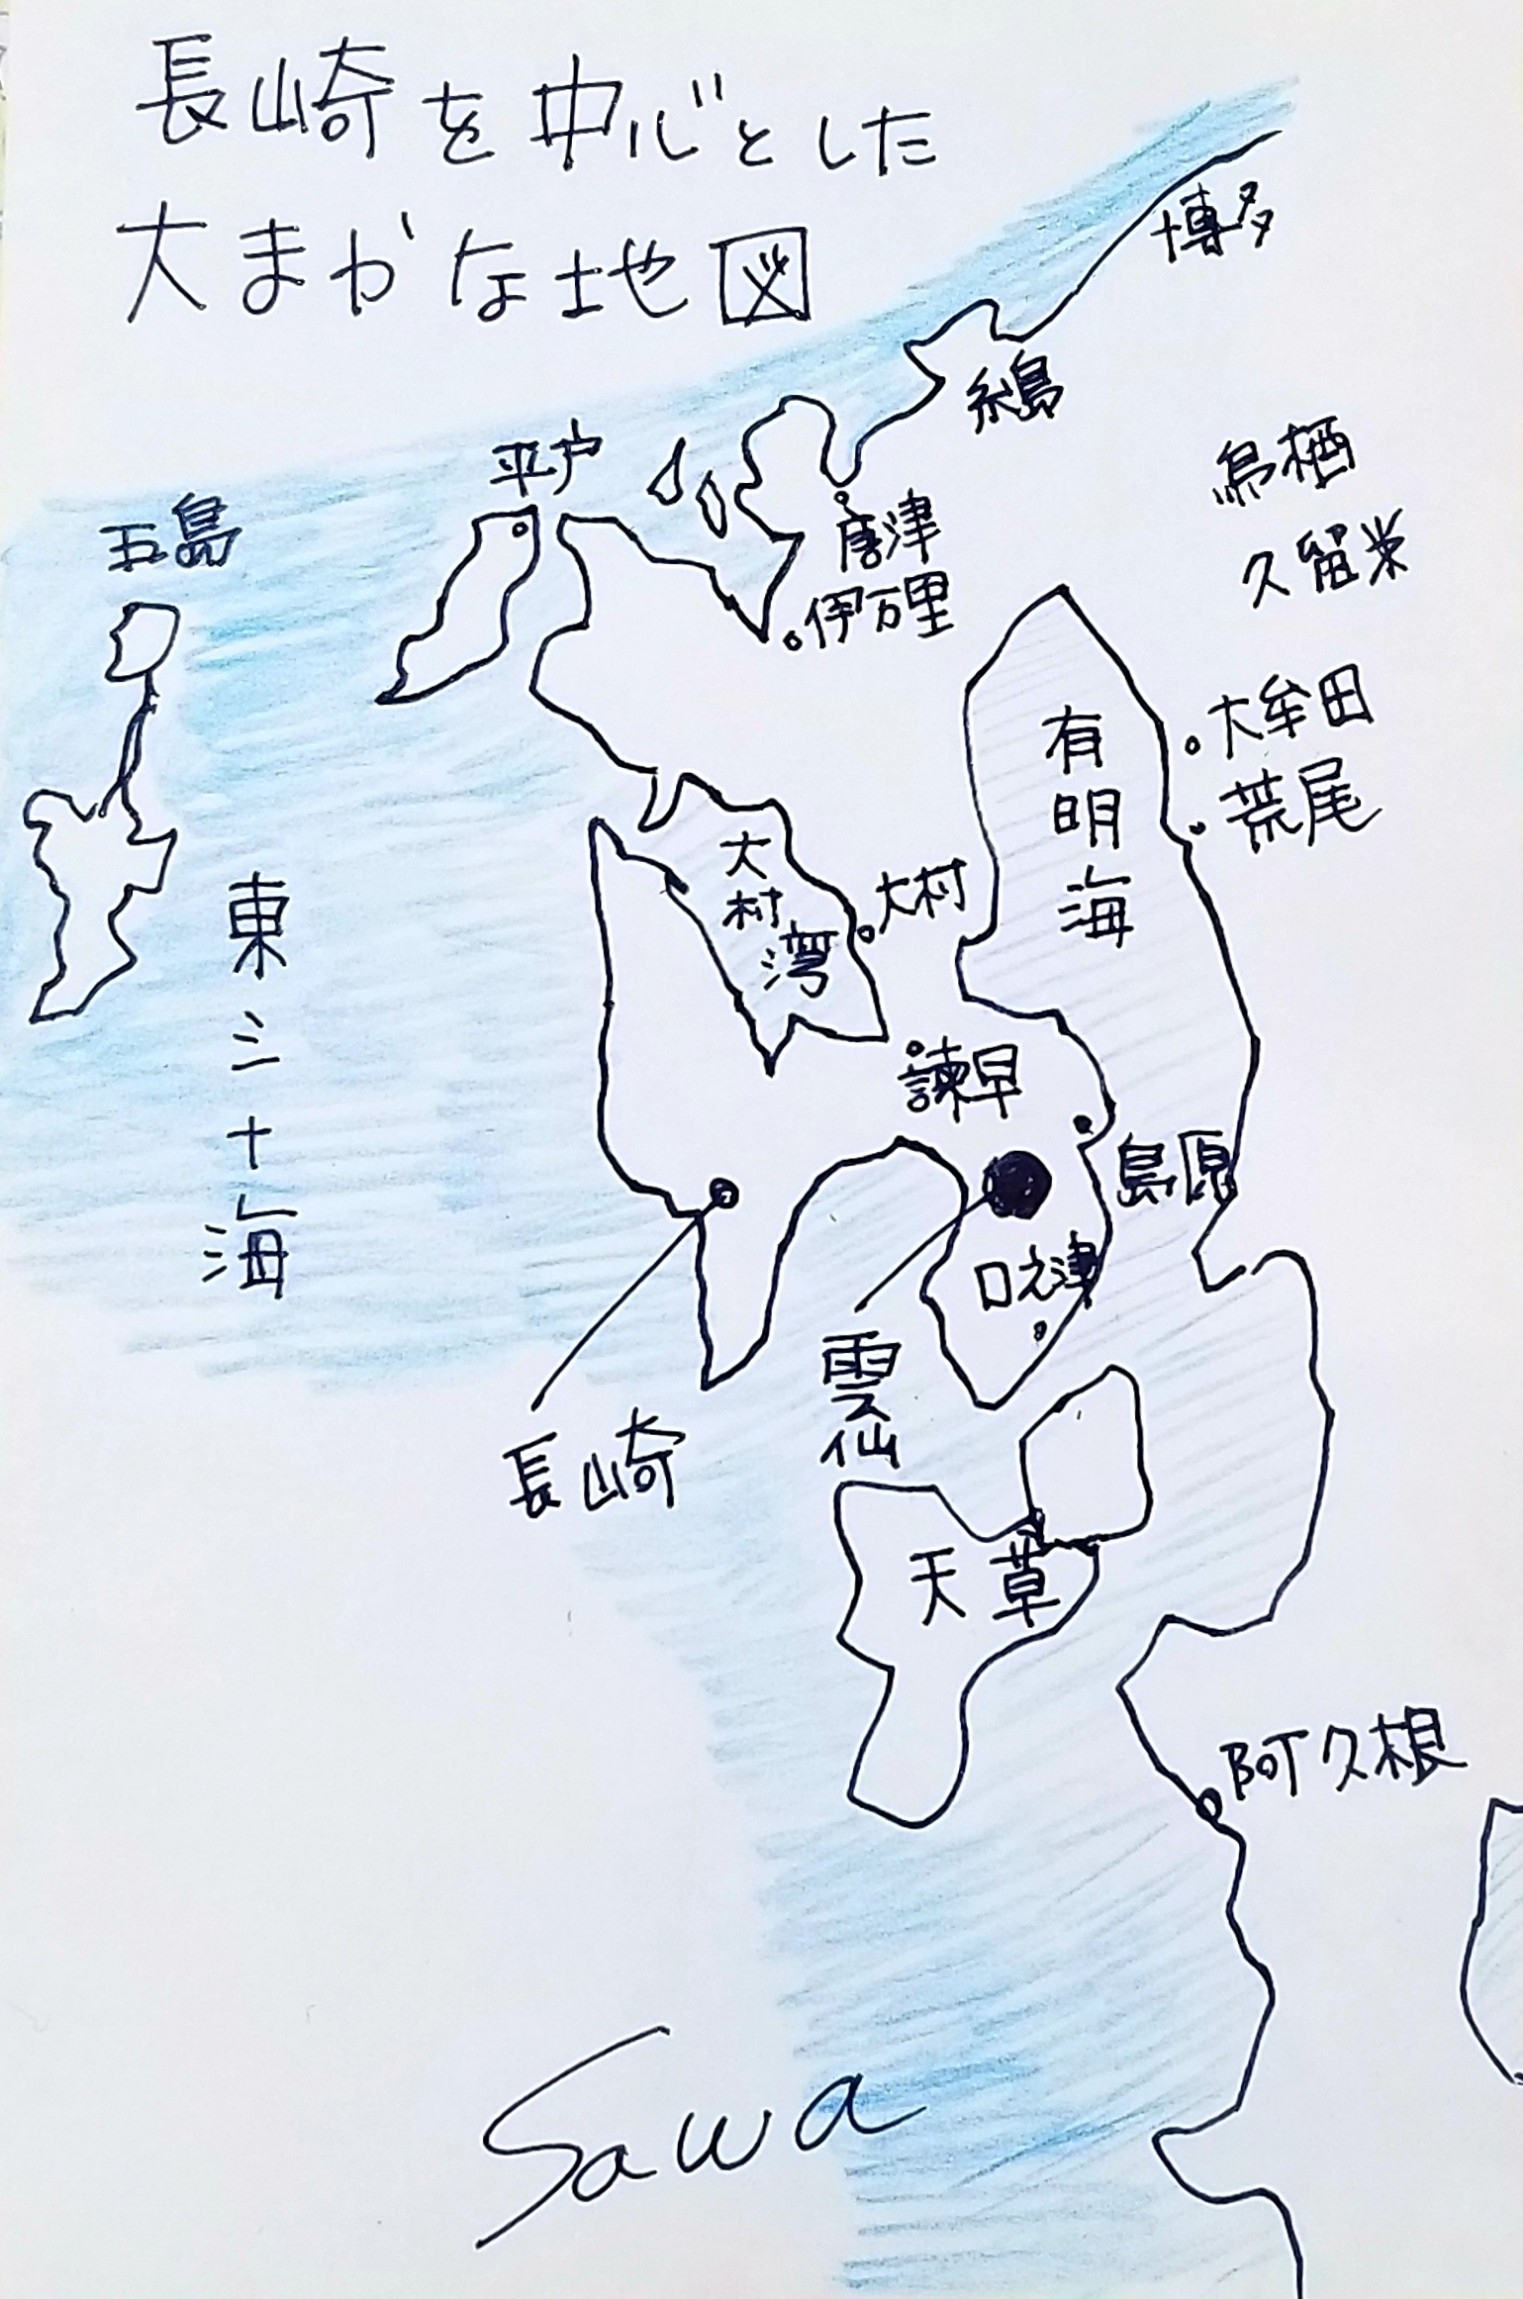 長崎を中心とした
大まかな地図
博多
糸島
平戸
鳥栖
五島
唐津
久留米
伊万里
大牟田
有明海
荒尾
大村湾
大村
東シナ海
諫早
島原
口之津
雲仙
長崎
天草
阿久根
Sawa